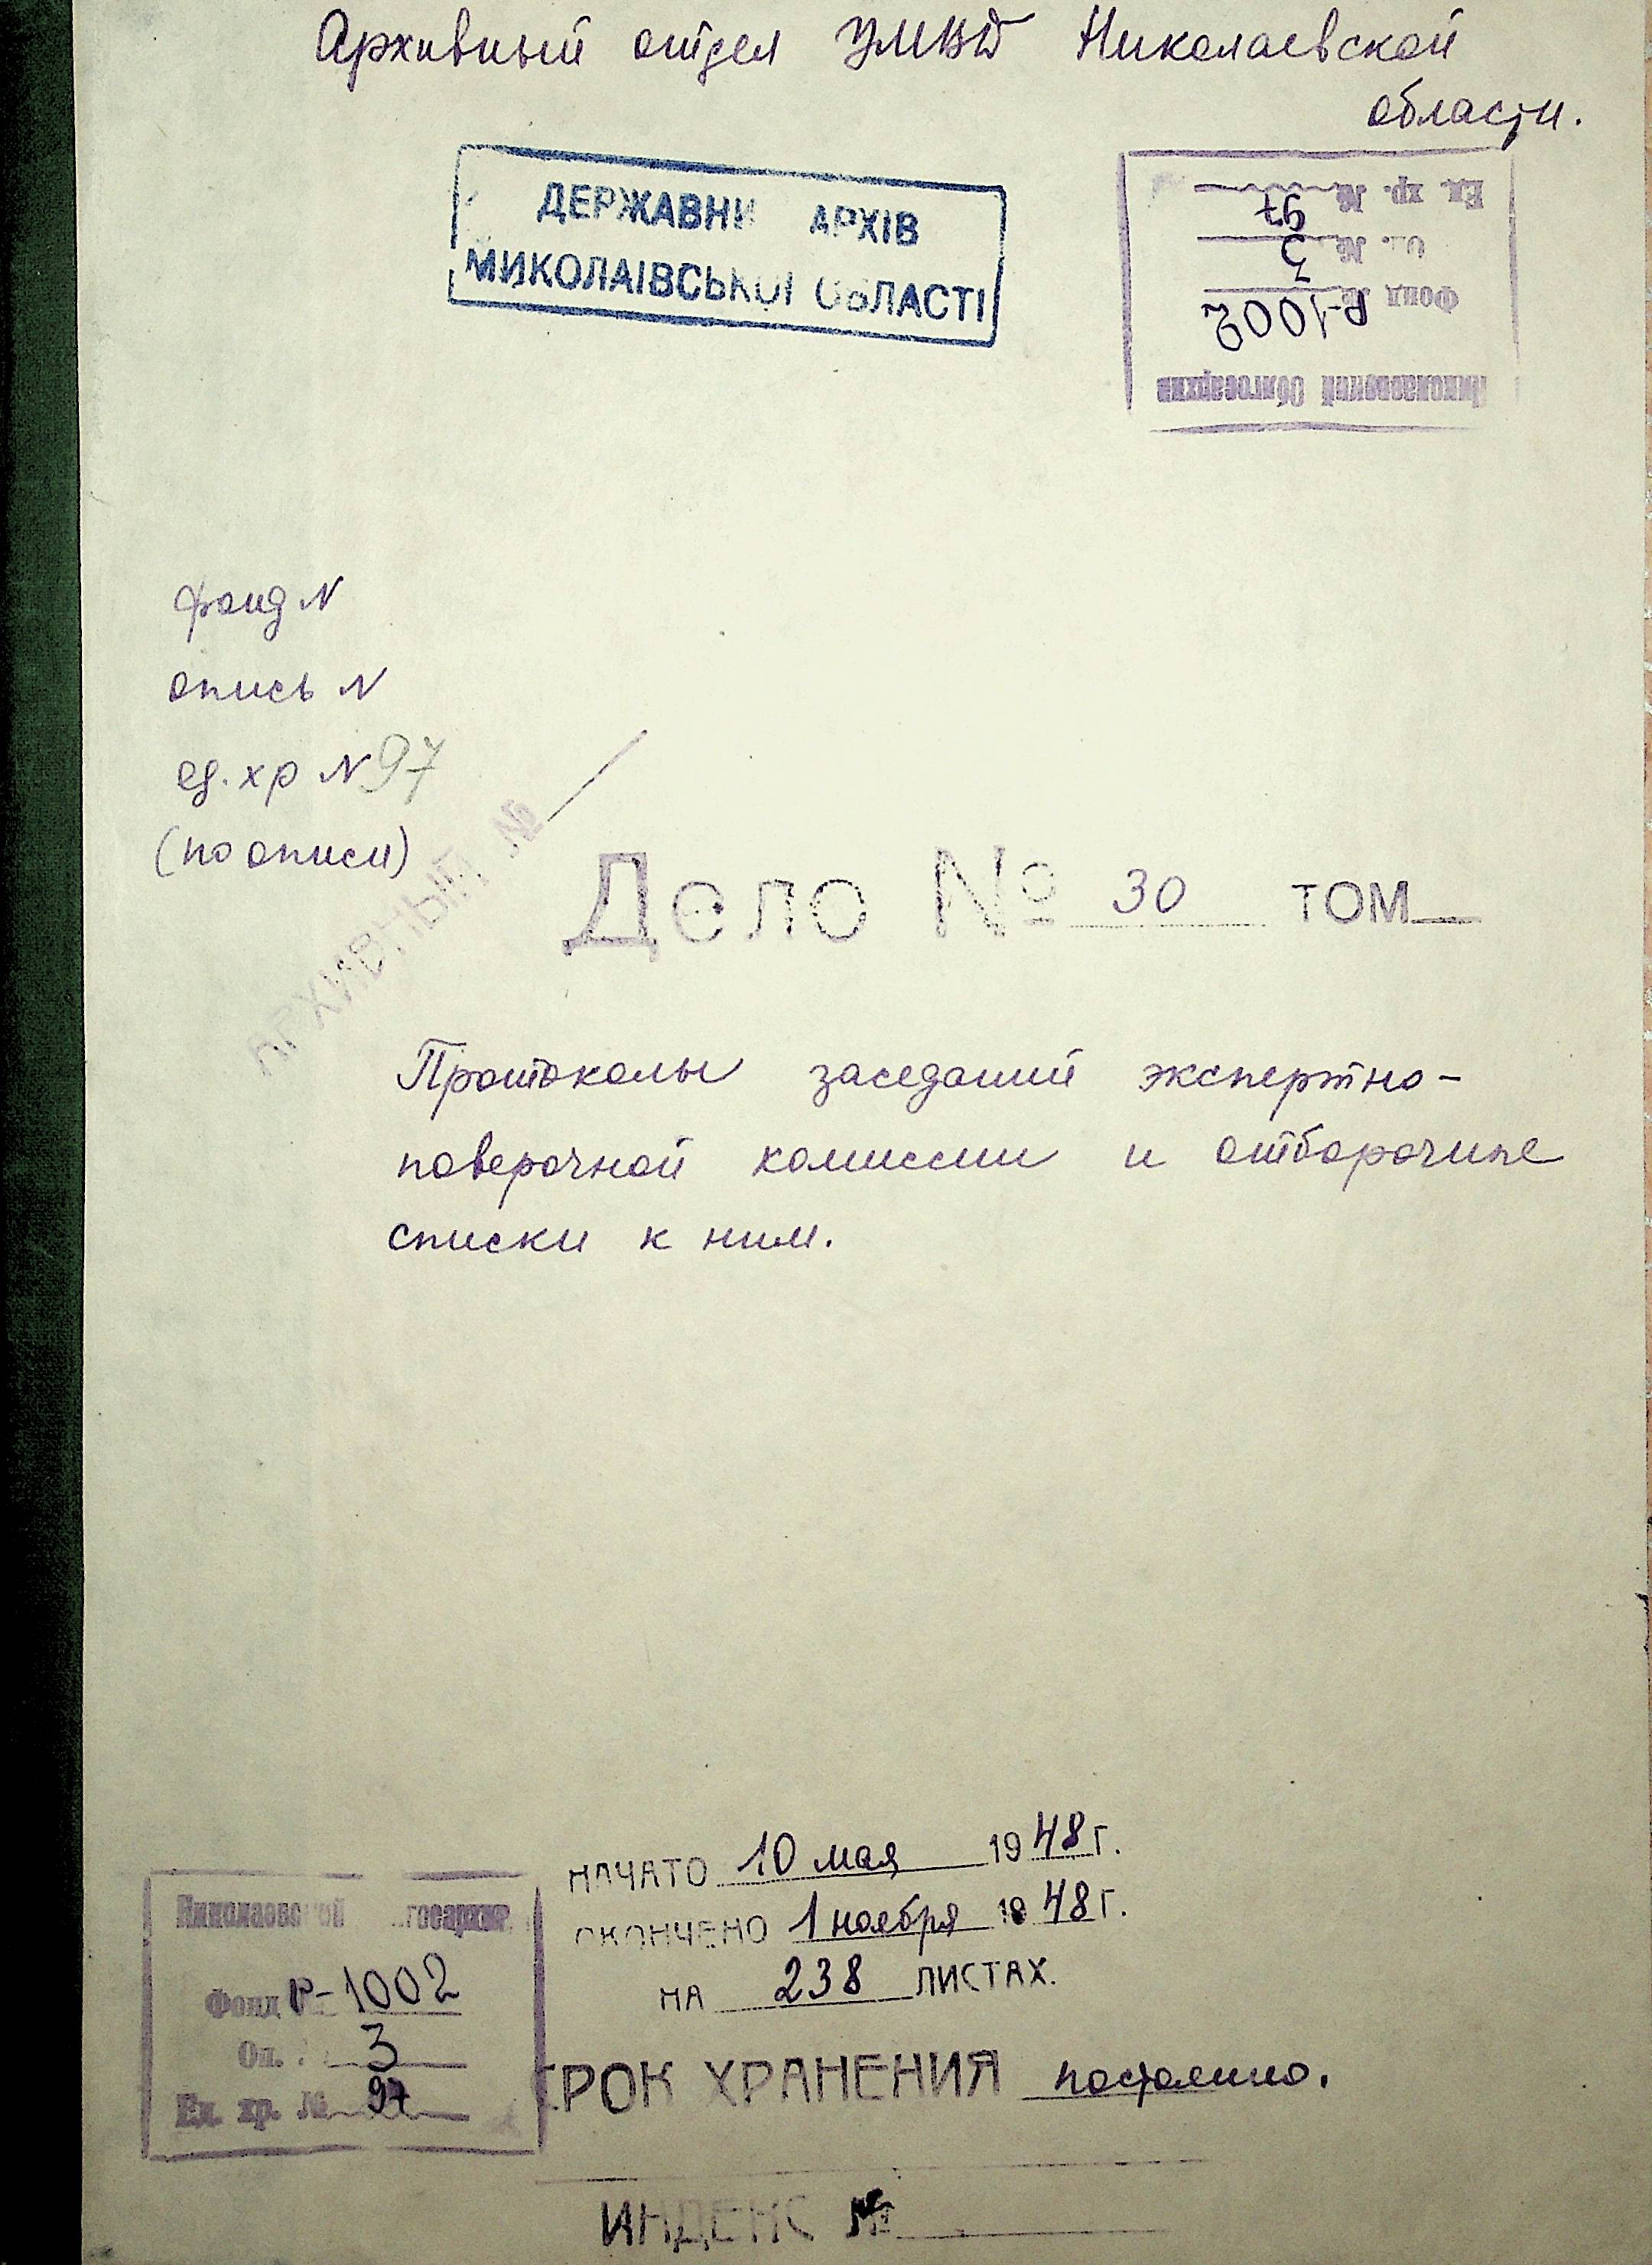 Архивный отдел УМВД Николаевской
области.
ДЕРЖАВНИ АРХІВ
МИКОЛАІВСЬКОІ ОБЛАСТІ
Николаевский Облгосархив
Фонд № Р-1002
Оп. № 3
Ед. хр. № 97
фонд N
опись N
ед. хр N 97
(по описи)
АРХИВНЫЙ №
Дело № 30 ТОМ
Протоколы заседаний экспертно-
поверочной комиссии и отборочные
списки к ним.
НАЧАТО 10 мая 1948 г.
ОКОНЧЕНО 1 ноября 1948 г.
НА 238 ЛИСТАХ.
Фонд Р-1002
Оп. 3
Ед. хр. № 97
СРОК ХРАНЕНИЯ постоянно.
ИНДЕКС №